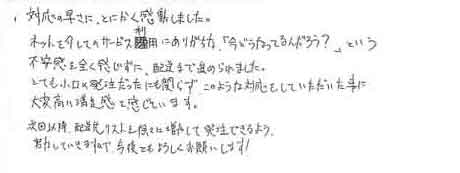 対応の早さに、とにかく感動しました。
ネットを介してのサービス利用にありがちな、「今どうなってるんだろう?」という
不安感を全く感じずに、配達まで進められました。
とても小口な発注だったにも関らず、このような対応をしていただいた事に
大変高い満足感を感じています。
次回以降、配達先リストを倍々に増やして発注できるよう、
努力していきますので、今後ともよろしくお願いします!